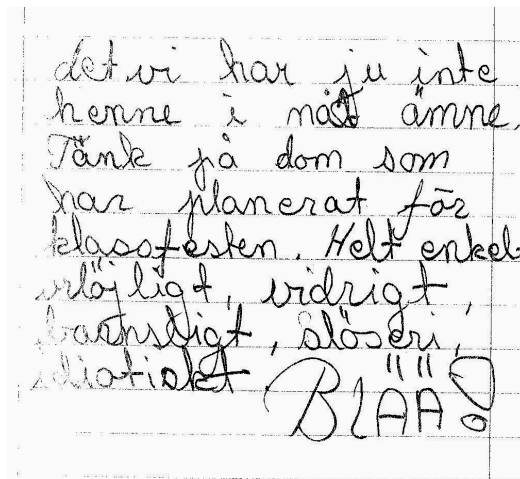 det vi har ju inte
henne i nåt ämne.
Tänk på dom som
har planerat för
klassfesten. Helt enkel
urlöjligt, vidrigt,
barnsligt, slöseri,
idiotiskt. BLÄÄ!